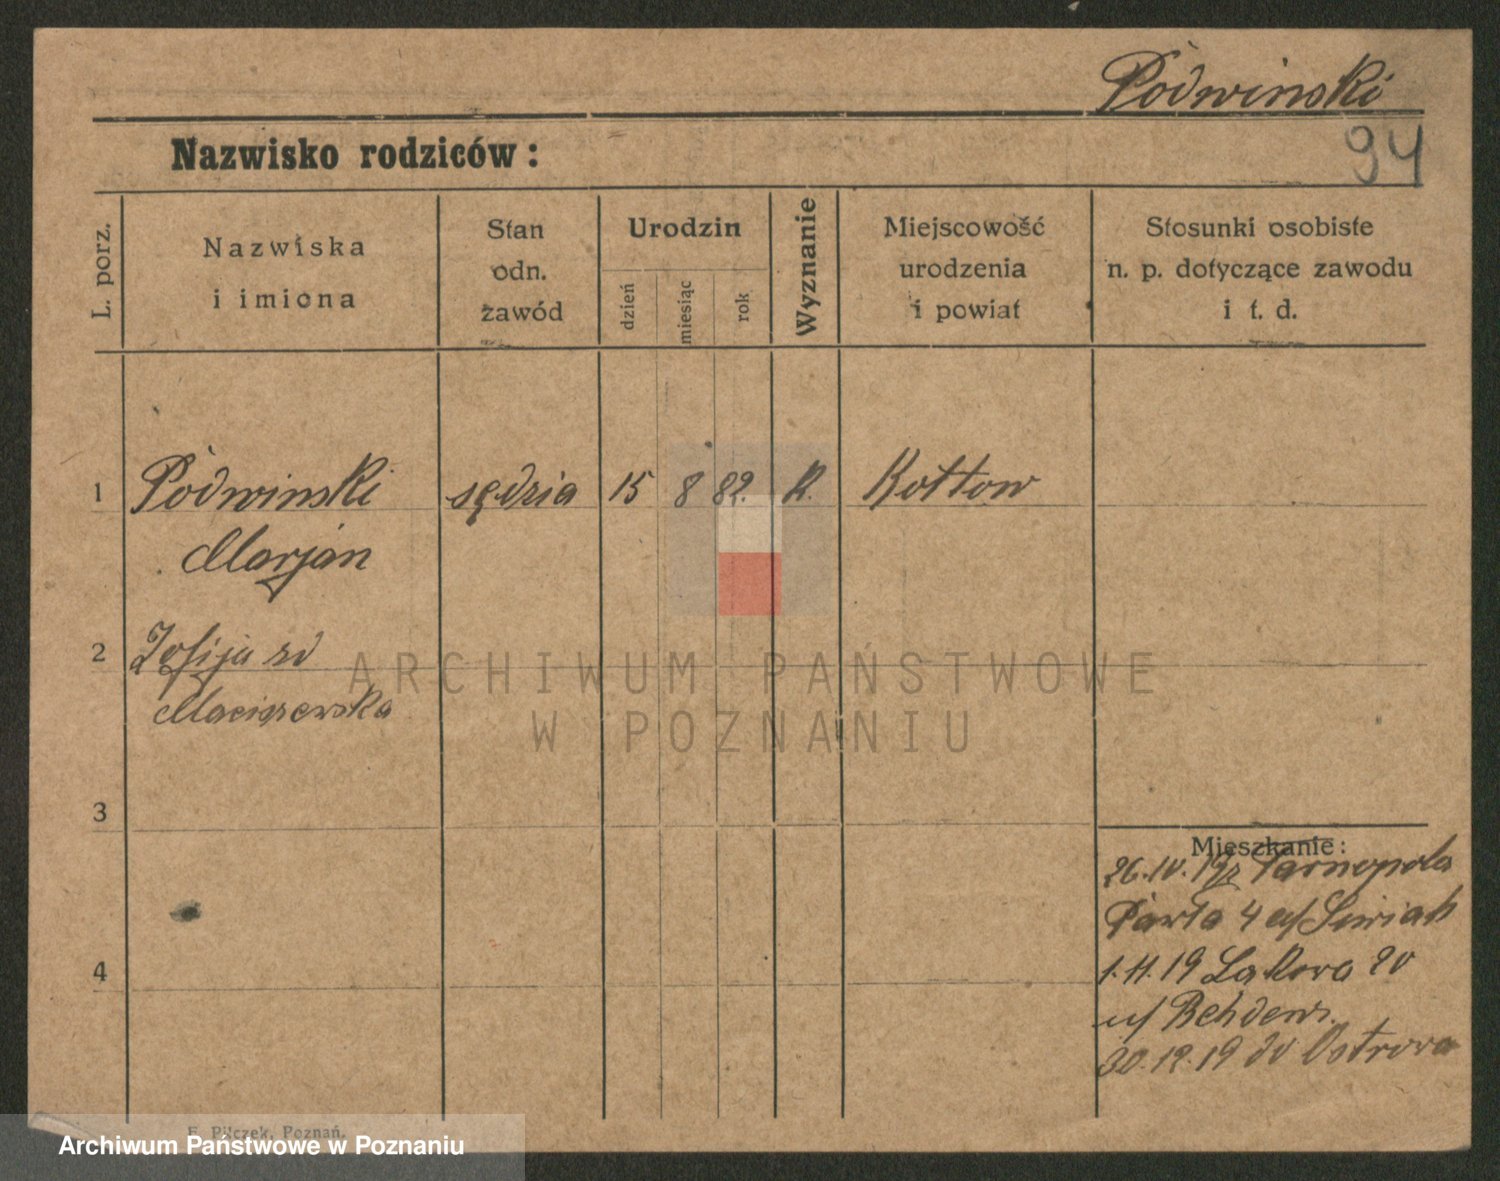 Pòdwinski
Nazwisko rodziców:
94
L. porz.
Nazwiska
i imiona
Stan
odn.
zawód
Urodzin
dzień
miesiąc
rok
Wyznanie
Miejscowość
urodzenia
i powiat
Stosunki osobiste
n. p. dotyczące zawodu
i t. d.
1
Pòdwinski
sędzia
15
8
82.
R.
Kottow
Marjan
2
Zofija zd
3
Mieszkanie:
26.IV.19 z Tarnopola
Pawła 4 u/
4
1.11.19 Łąkowa 20
u/
30.12.19 do Ostrowa
F. Pilczek, Poznań.
ARCHIWUM PAŃSTWOWE
W POZNANIU
Archiwum Państwowe w Poznaniu